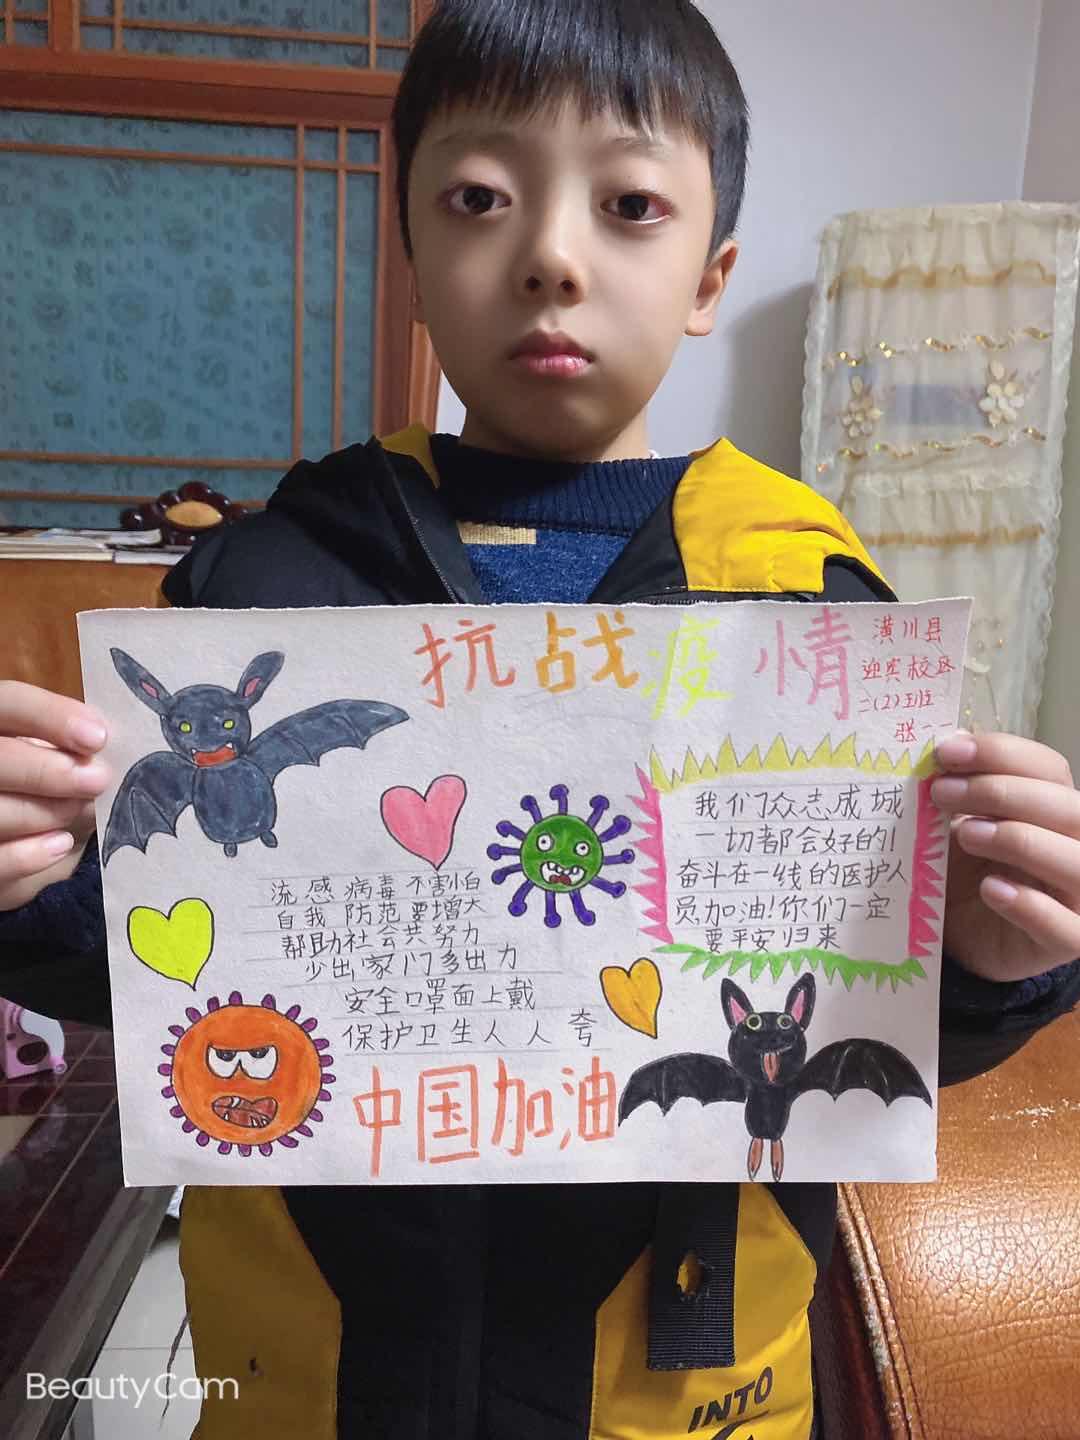 抗战疫情
潢川县
迎宾校区
二(2)班
张一一
我们众志成城
一切都会好的!
奋斗在一线的医护人
员,加油!你们一定
要平安归来
流感病毒不害怕
自我防范要增大
帮助社会共努力
少出家门多出力
安全口罩面上戴
保护卫生人人夸
中国加油
INTO
BeautyCam